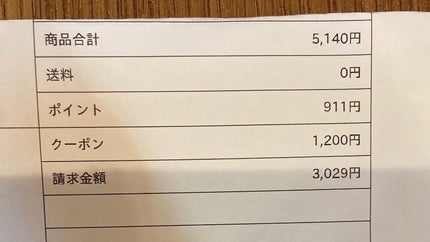 商品合計 5,140円
送料 0円
ポイント 911円
クーポン 1,200円
請求金額 3,029円